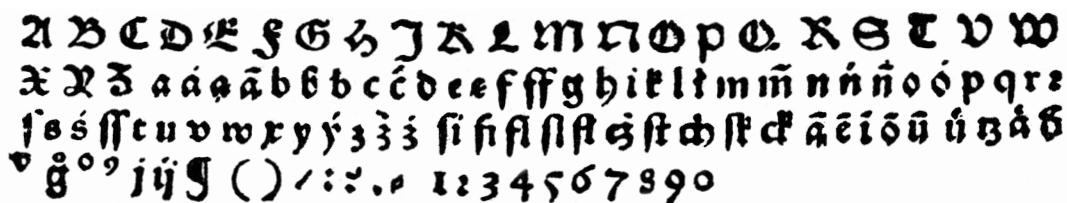 A B C D E F G H J K L M N O P Q R S T V W
X Y Z a á ą ã b b̃ b c c̃ d e ę f ff g h i k l ł m m̃ n ń ñ o ó p q r ꝛ
ſ s ś ſſ t u v w x y ý z z̃ ż ſi fi fl ſl fl ſt ch ſk ck ã ẽ ĩ õ ũ ű tz
g̊ o 9 j ij ¶ ( ) / : . 1 2 3 4 5 6 7 8 9 0